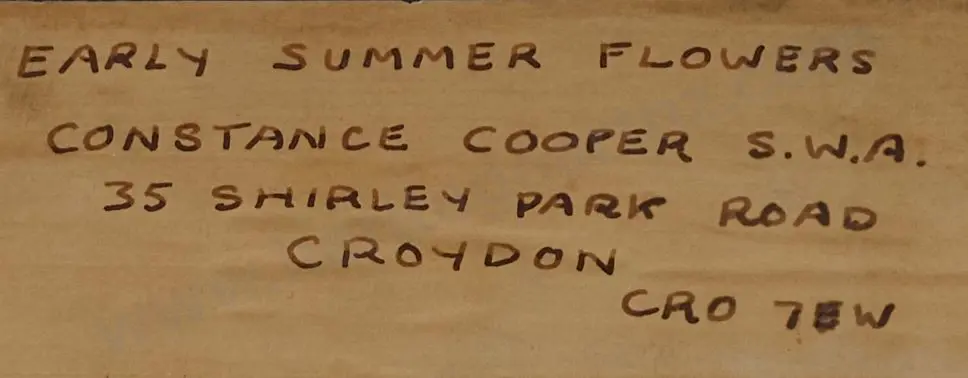 EARLY SUMMER FLOWERS
CONSTANCE COOPER S.W.A.
35 SHIRLEY PARK ROAD
CROYDON
CRO 7EW